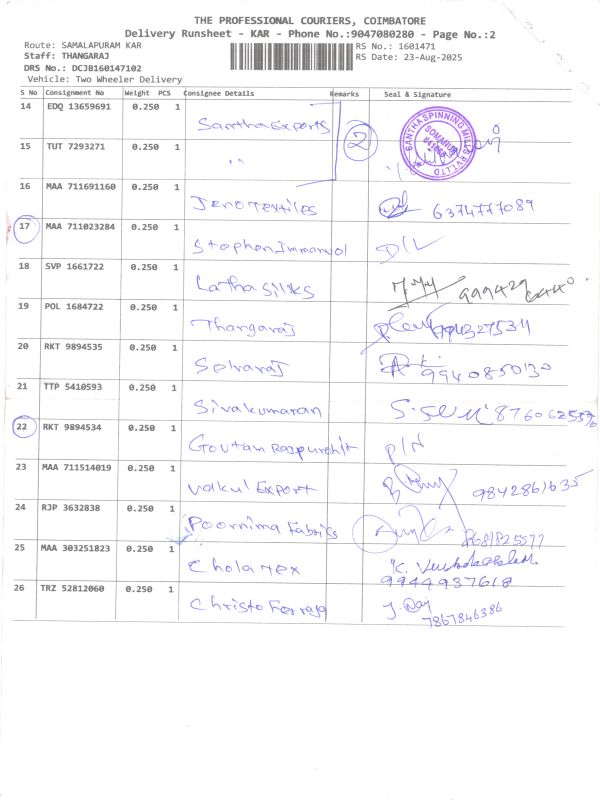 THE PROFESSIONAL COURIERS, COIMBATORE
Delivery Runsheet - KAR - Phone No.:9047080280 - Page No.:2
Route: SAMALAPURAM KAR
Staff: THANGARAJ
DRS No.: DCJB160147102
Vehicle: Two Wheeler Delivery
RS No.: 1601471
RS Date: 23-Aug-2025
S No Consignment No Weight PCS Consignee Details Remarks Seal & Signature
14 EDQ 13659691 0.250 1 Santha Exports 2
15 TUT 7293271 0.250 1 "
SANTHA SPINNING MILLS PVT LTD
16 MAA 711691160 0.250 1 Jero Textiles 6374777089
17 MAA 711023284 0.250 1 Stephen Immanvol D/L
18 SVP 1661722 0.250 1 Latha Silks
19 POL 1684722 0.250 1 Thangaraj
20 RKT 9894535 0.250 1 Selvaraj 9940885030
21 TTP 5410593 0.250 1 Sivakumaran
22 RKT 9894534 0.250 1 Goutam Rajpurohit
23 MAA 711514019 0.250 1 Vakul Export
24 RJP 3632838 0.250 1 Poornima Fabrics
25 MAA 303251823 0.250 1 Chola Tex
9944937618
26 TRZ 52812060 0.250 1 Christo Ferraja J. Raj
7867846386